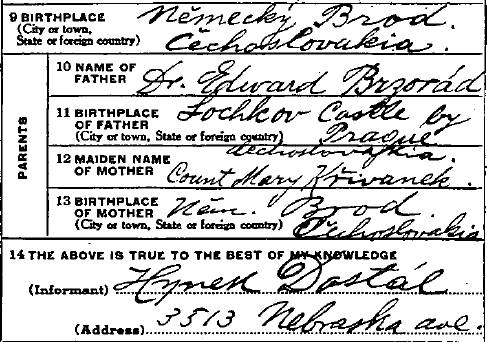 9 BIRTHPLACE Německý Brod.
(City or town,
State or foreign country) Čechoslovakia.
PARENTS
10 NAME OF
FATHER Dr. Edward Brzorád
11 BIRTHPLACE Lochkov Castle by
OF FATHER
(City or town, State or foreign country) Prague
Čechoslovakia.
12 MAIDEN NAME
OF MOTHER Count Mary Křivanek.
13 BIRTHPLACE
OF MOTHER Něm. Brod.
(City or town, State or foreign country) Čechoslovakia
14 THE ABOVE IS TRUE TO THE BEST OF MY KNOWLEDGE
(Informant) Hynek Dostál
(Address) 3513 Nebraska ave.